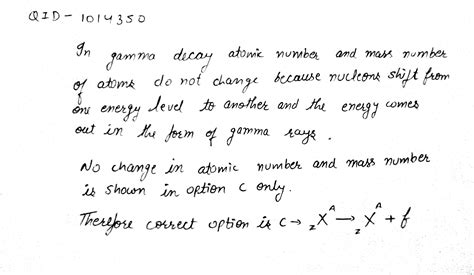 QID - 1014350
In gamma decay atomic number and mass number
of atoms do not change because nucleons shift from
one energy level to another and the energy comes
out in the form of gamma rays.
No change in atomic number and mass number
is shown in option C only.
Therefore correct option is C → zXᴬ → zXᴬ + f